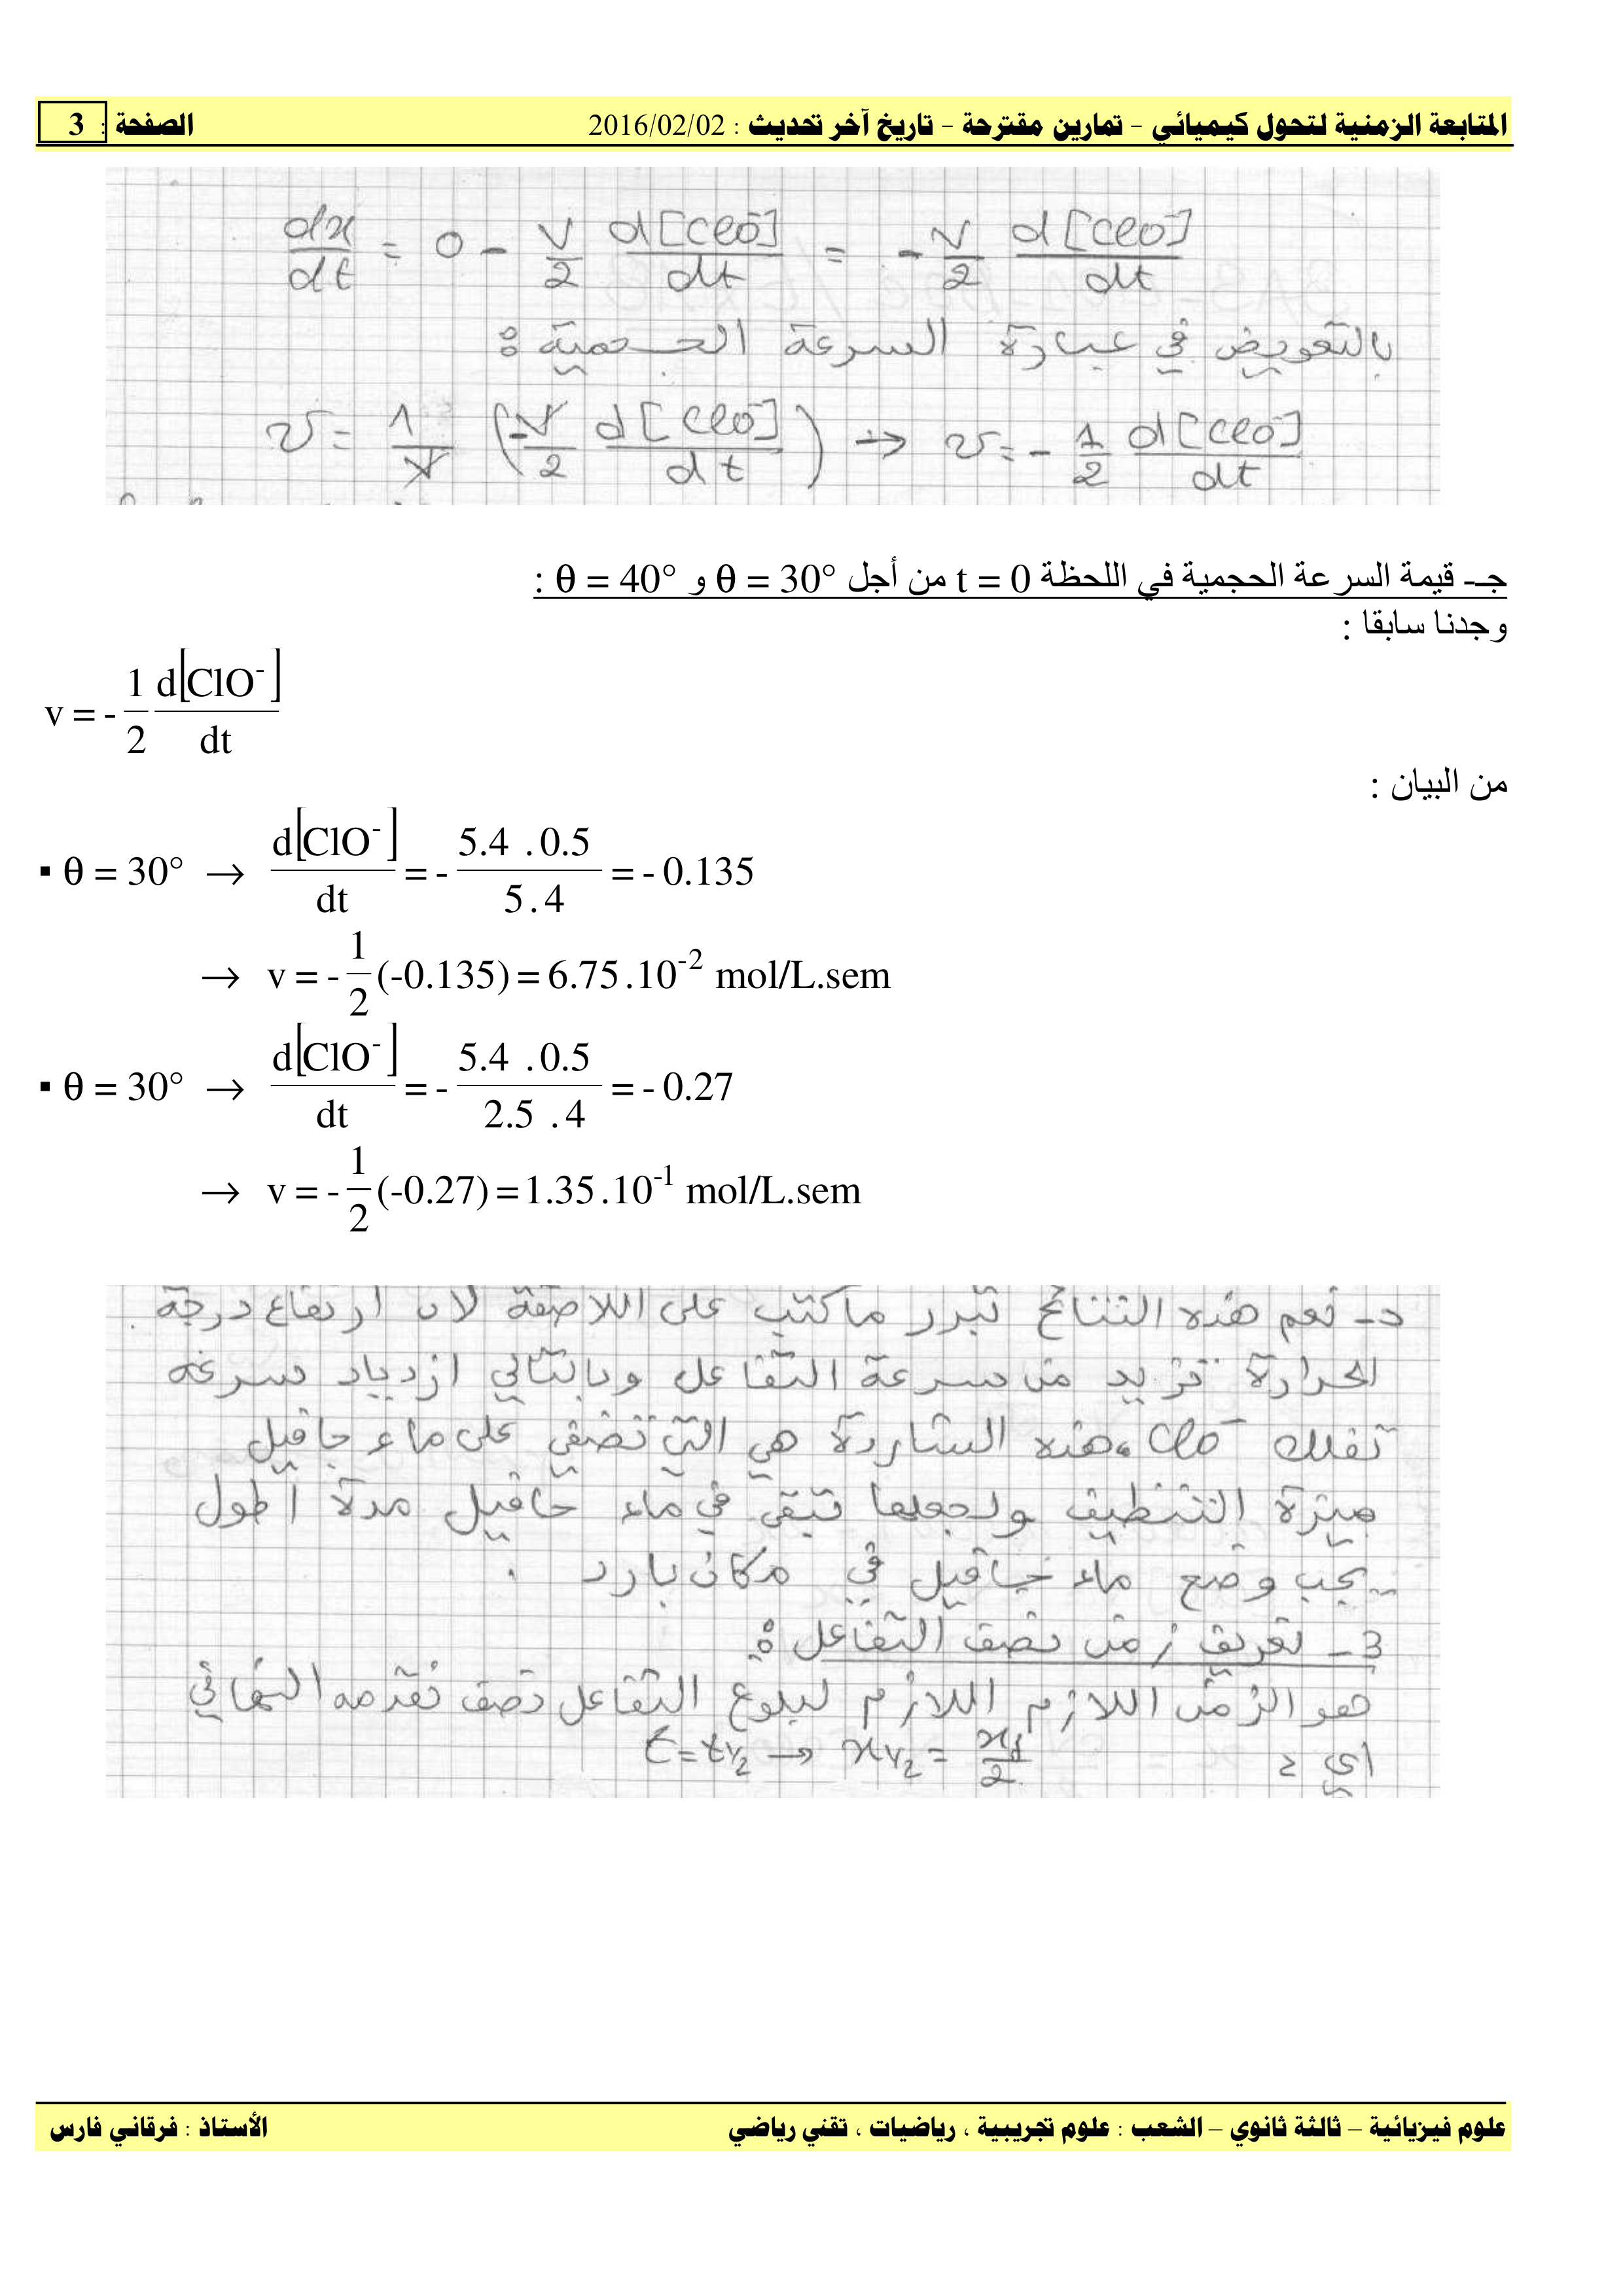 المتابعة الزمنية لتحول كيميائي – تمارين مقترحة – تاريخ آخر تحديث : 2016/02/02 الصفحة : 3
dx/dt = 0 - V/2 d[ClO⁻]/dt = - V/2 d[ClO⁻]/dt
بالتعويض في عبارة السرعة الحجمية :
v = 1/V (-V/2 d[ClO⁻]/dt) → v = - 1/2 d[ClO⁻]/dt
جـ- قيمة السرعة الحجمية في اللحظة t = 0 من أجل θ = 30° و θ = 40° :
وجدنا سابقا :
v = - 1/2 d[ClO⁻]/dt
من البيان :
▪ θ = 30° → d[ClO⁻]/dt = - (5.4 . 0.5)/(5 . 4) = - 0.135
→ v = - 1/2 (-0.135) = 6.75 .10⁻² mol/L.sem
▪ θ = 30° → d[ClO⁻]/dt = - (5.4 . 0.5)/(2.5 . 4) = - 0.27
→ v = - 1/2 (-0.27) = 1.35 .10⁻¹ mol/L.sem
د- نعم هذه النتائج تبرر ما كتب على اللاصقة لأن ارتفاع درجة
الحرارة تزيد من سرعة التفاعل وبالتالي ازدياد سرعة
تفكك ClO⁻، هذه الشاردة هي التي تضفي على ماء جافيل
ميزة التنظيف ولجعلها تبقى في ماء جافيل مدة أطول
يجب وضع ماء جافيل في مكان بارد .
3- تعريف زمن نصف التفاعل :
هو الزمن اللازم اللازم لبلوغ التفاعل نصف تقدمه النهائي
أي : t = t1/2 → x1/2 = xf/2
علوم فيزيائية – ثالثة ثانوي – الشعب : علوم تجريبية ، رياضيات ، تقني رياضي الأستاذ : فرقاني فارس